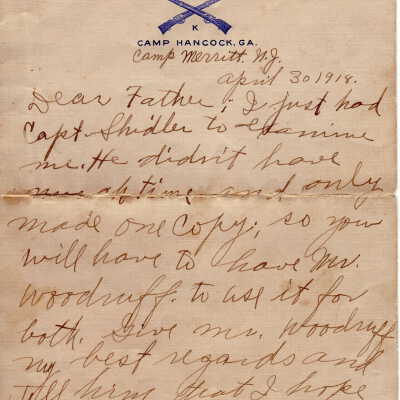 K
CAMP HANCOCK, GA.
Camp Merritt. N.J.
April 30 1918.
Dear Father; I just had
Capt. Shidler to examine
me. He didn't have
time and only
made one Copy; so you
will have to have Mr.
Woodruff. to use it for
both. Give Mr. Woodruff
my best regards and
tell him that I hope